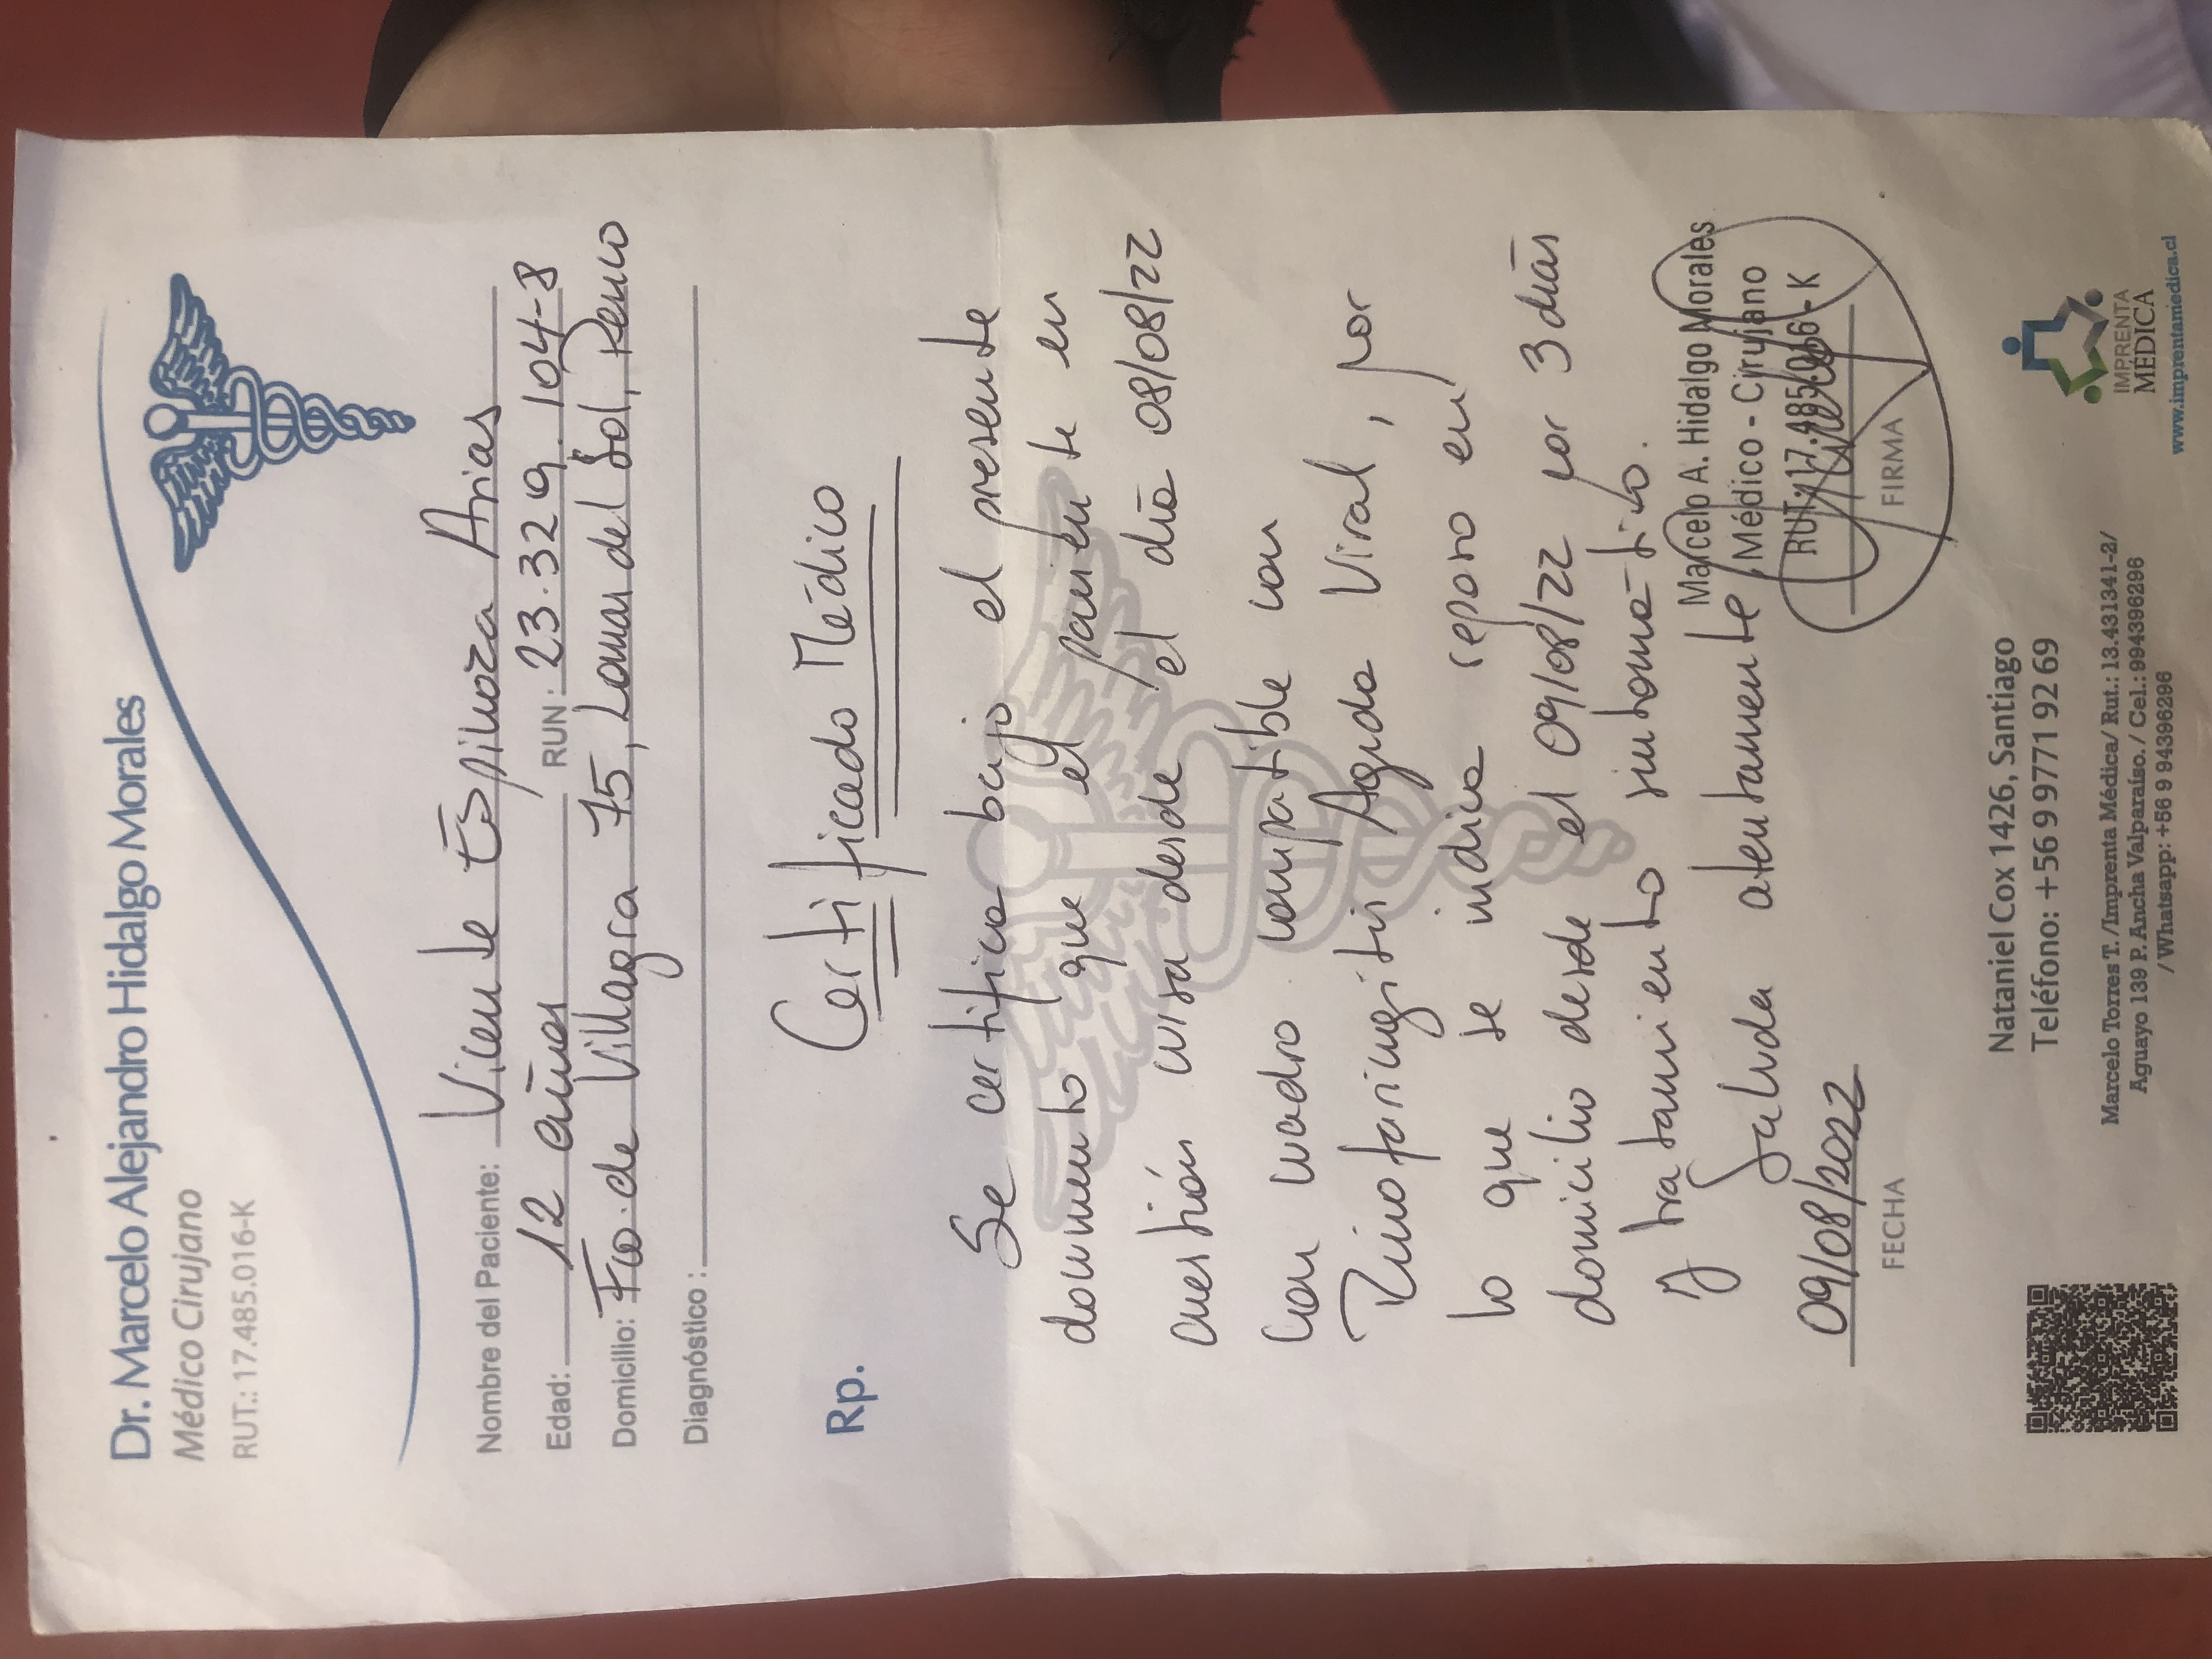 Dr. Marcelo Alejandro Hidalgo Morales
Médico Cirujano
RUT.: 17.485.016-K
Nombre del Paciente: Vicente Espinoza Arias
Edad: 12 años RUN: 23.329.104-8
Domicilio: Fco. de Villagra 75, Lomas del Sol, Penco
Diagnóstico:
Rp.
Certificado Médico
Se certifica bajo el presente
documento que el paciente en
cuestión cursa desde el día 08/08/22
con cuadro compatible con
Rinofaringitis Aguda Viral, por
lo que se indica reposo en
domicilio desde el 09/08/22 por 3 días
y tratamiento sintomático.
Saluda atentamente,
Marcelo A. Hidalgo Morales
Médico - Cirujano
RUT: 17.485.016-K
09/08/2022
FECHA
FIRMA
Nataniel Cox 1426, Santiago
Teléfono: +56 9 9771 92 69
Marcelo Torres T./Imprenta Médica/ Rut.: 13.431341-2/
Aguayo 139 P. Ancha Valparaíso./ Cel.: 994396296
/Whatsapp: +56 9 94396296
IMPRENTA
MÉDICA
www.imprentamedica.cl